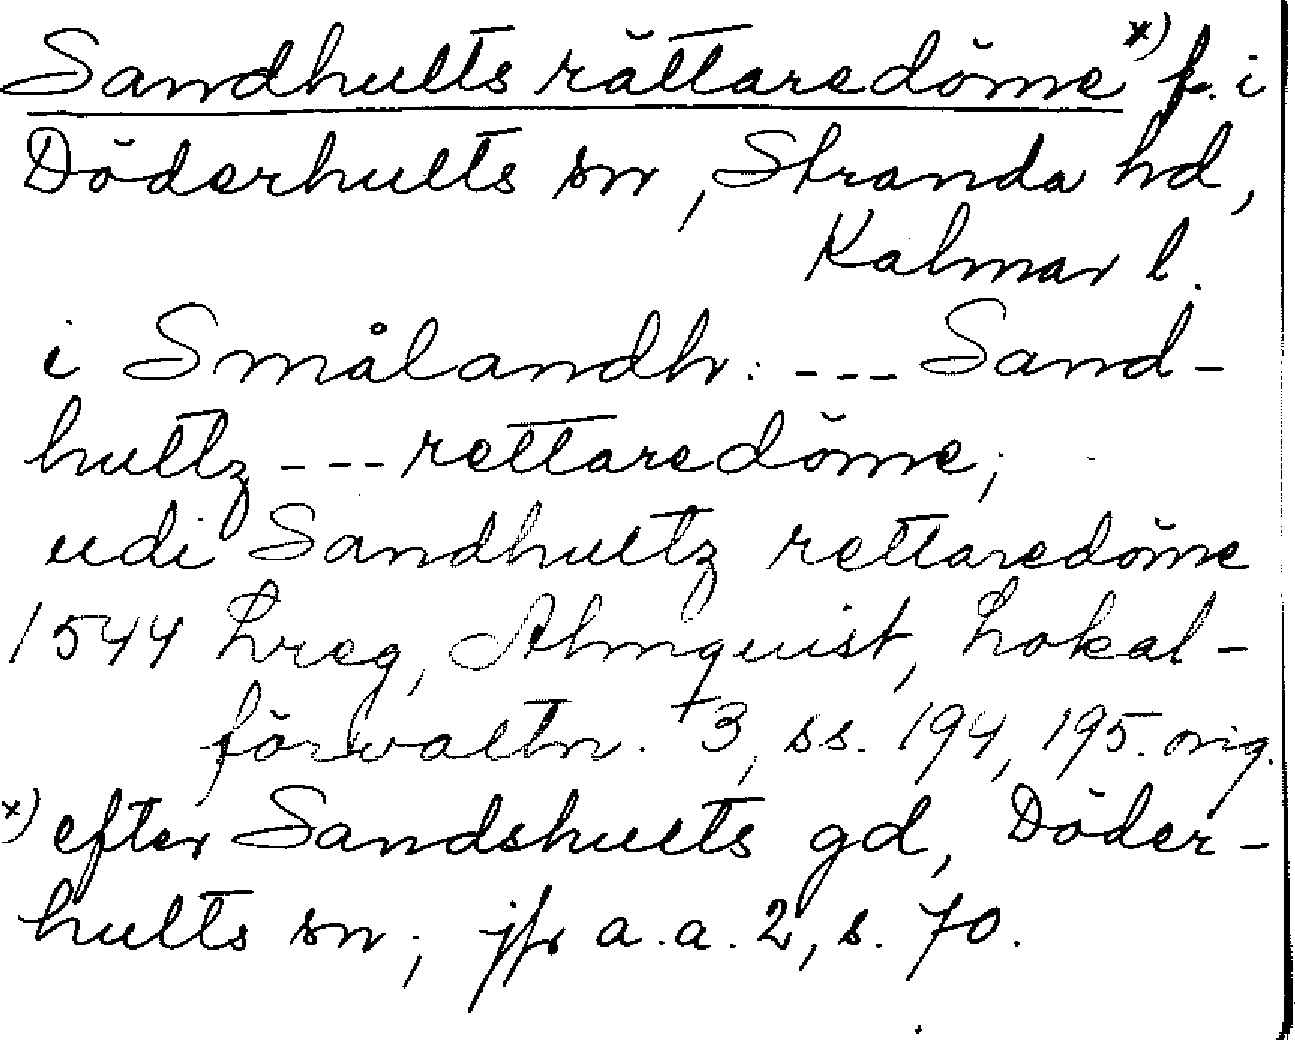 Sandhults rättaredöme *) f. i
Döderhults sn, Stranda hd,
Kalmar l.
i Smålandh: --- Sand-
hultz --- rettaredöme;
udi Sandhultz rettaredöme
1544 Lreg, Almquist, Lokal-
förvaltn. 3, ss. 194, 195. orig.
*) efter Sandshults gd, Döder-
hults sn; jfr a.a. 2, s. 70.